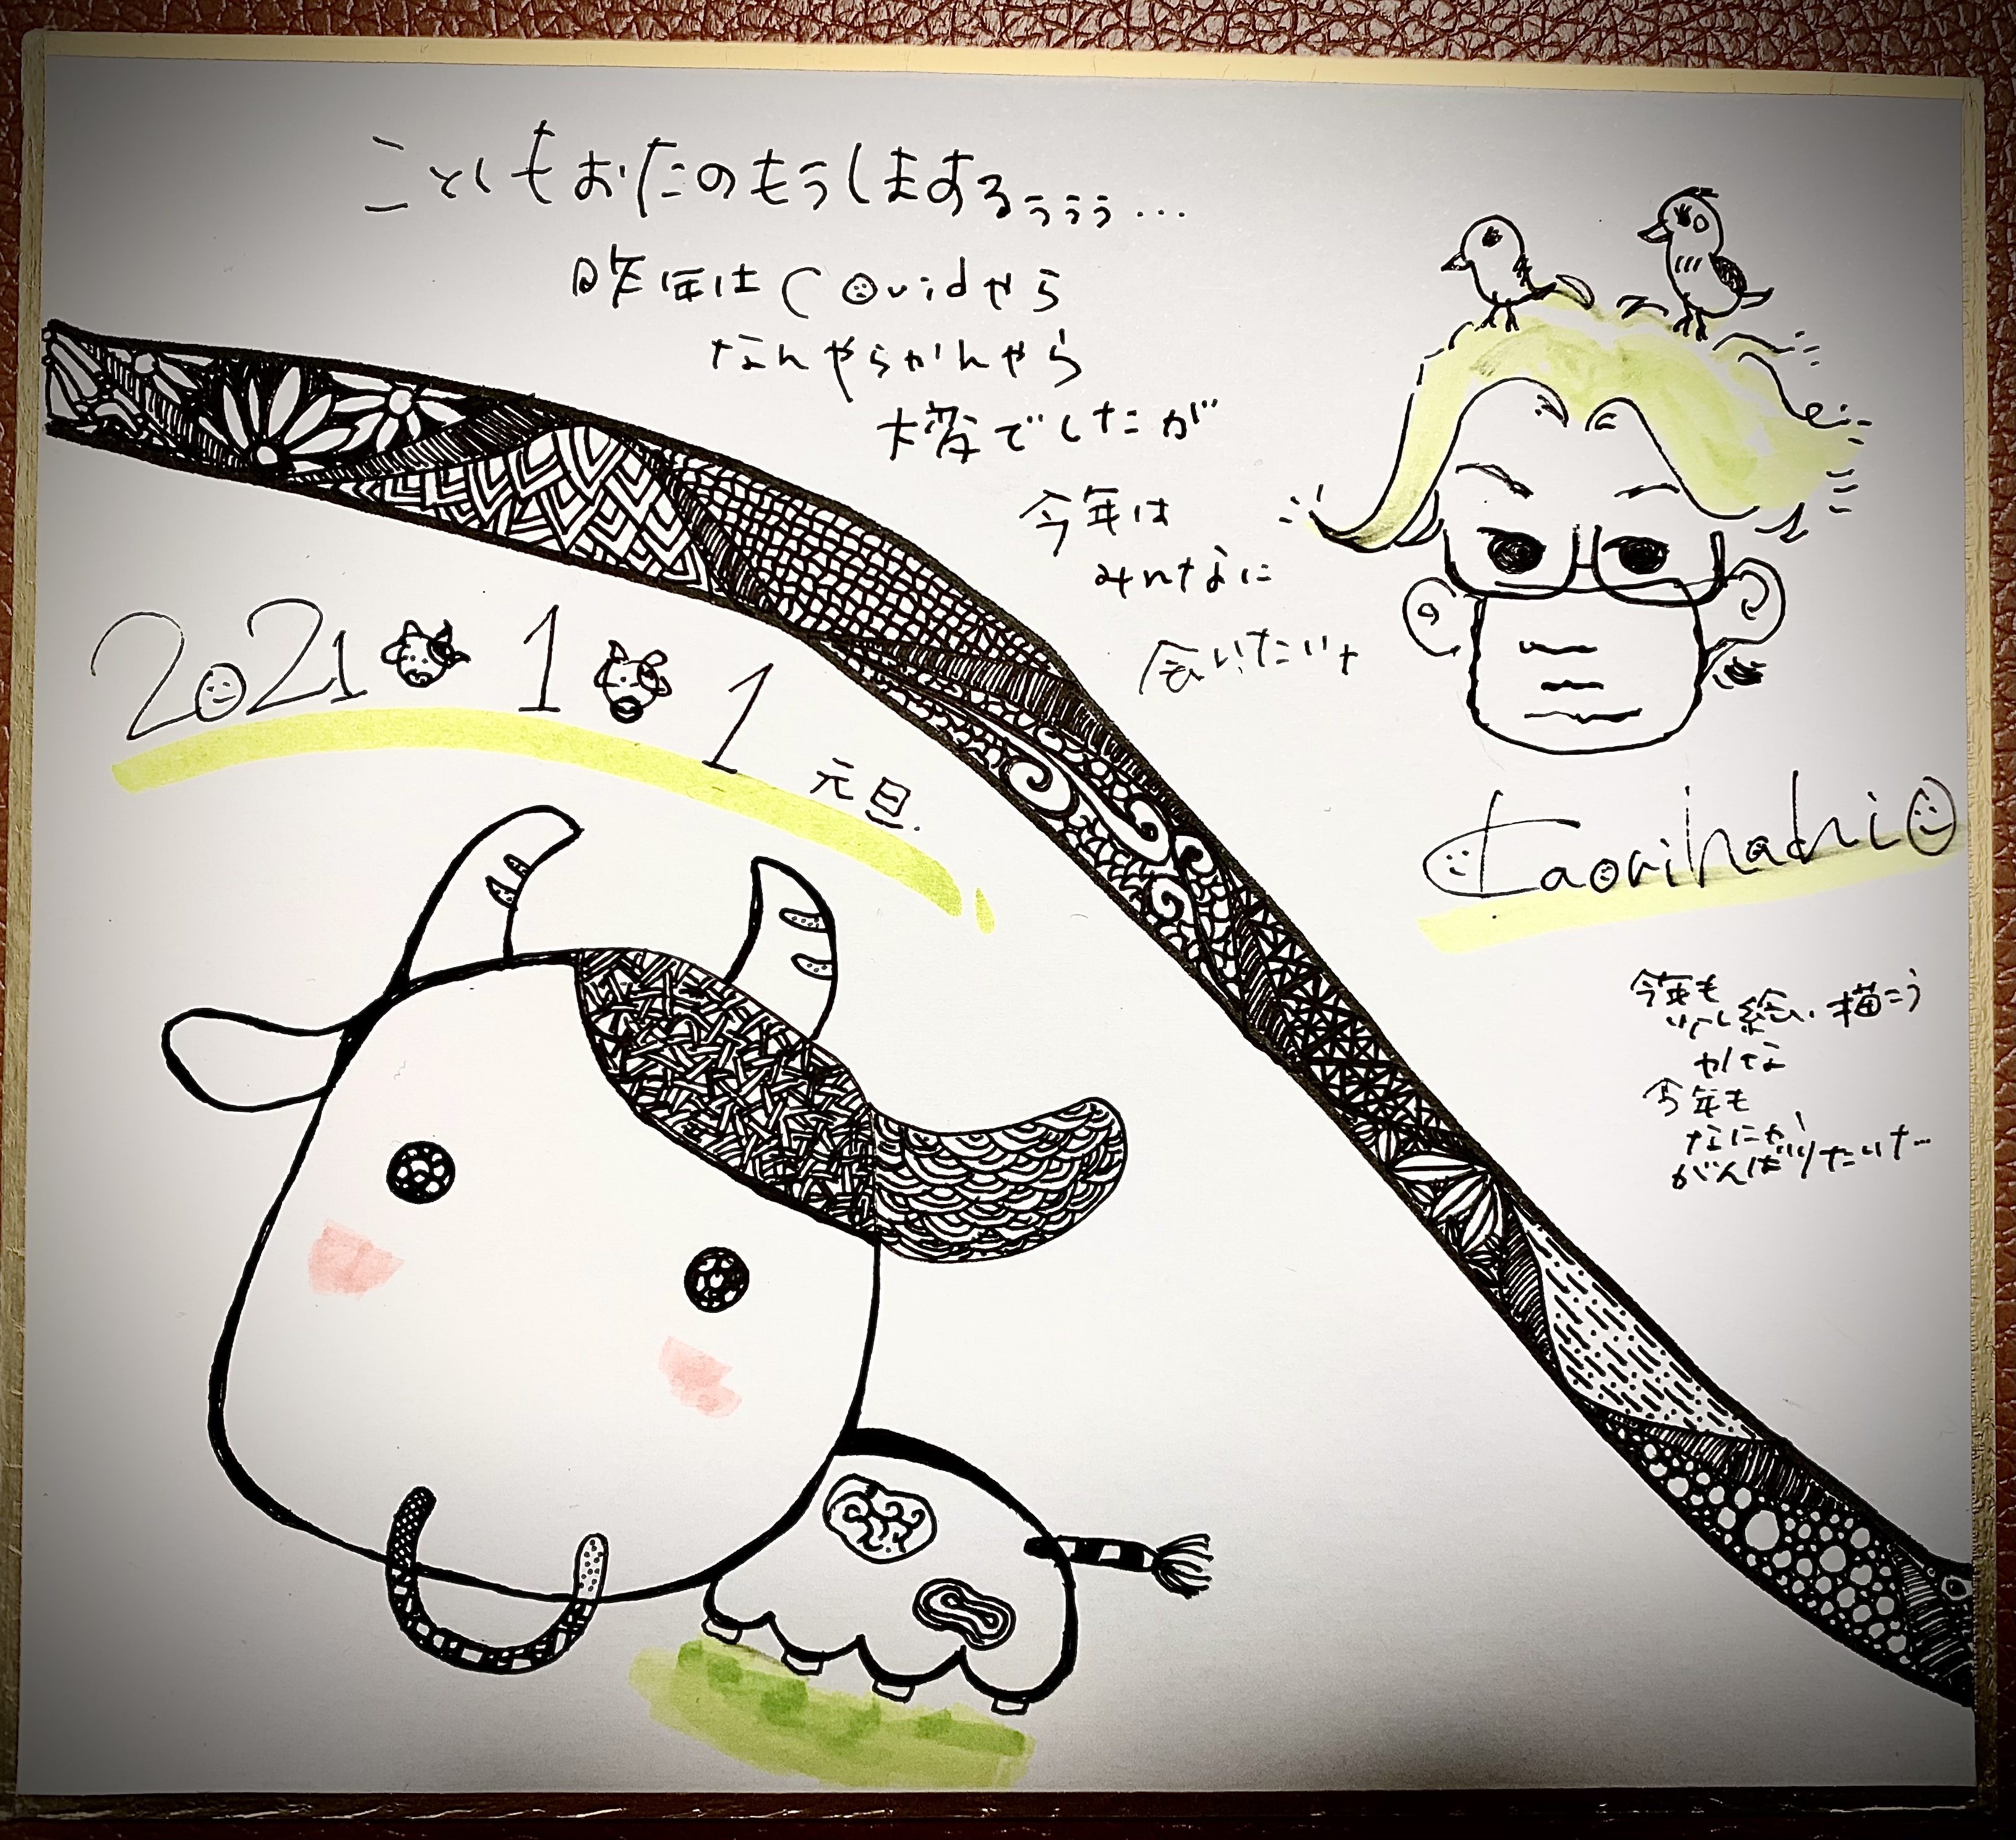 ことしもおたのもうしまするぅぅぅ...
昨年はCovidやら
なんやらかんやら
大変でしたが
今年は
みんなに
会いたいナ
2021 1 1
元旦.
kaorihahi
今年も
少し絵い描こう
かなな
今年も
なにか、
がんばりたいナ...